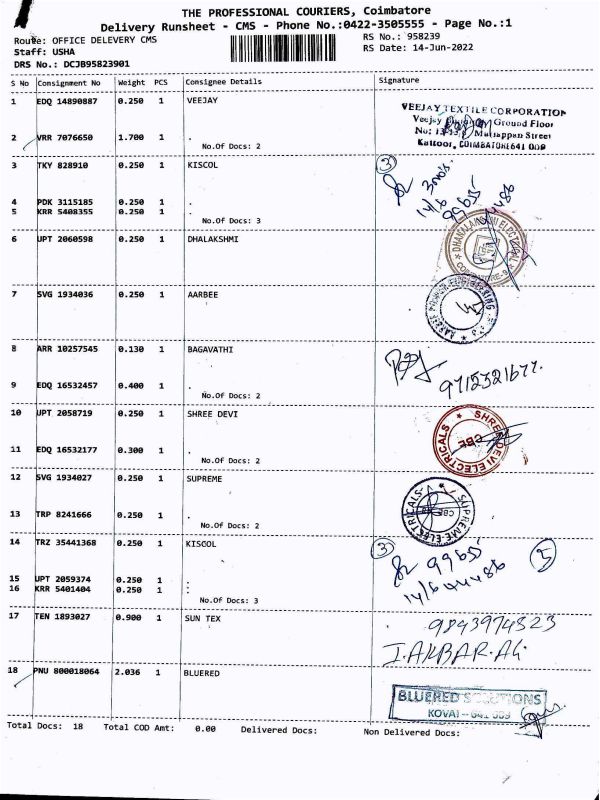 THE PROFESSIONAL COURIERS, Coimbatore
Delivery Runsheet - CMS - Phone No.:0422-3505555 - Page No.:1
Route: OFFICE DELEVERY CMS
RS No.: 958239
Staff: USHA
RS Date: 14-Jun-2022
DRS No.: DCJB95823901
S No Consignment No Weight PCS Consignee Details Signature
1 EDQ 14890887 0.250 1 VEEJAY
VEEJAY TEXTILE CORPORATION
Ground Floor
2 VRR 7076650 1.700 1 .
Muthappan Street
No.Of Docs: 2
Kattoor, COIMBATORE 641 009
3 TKY 828910 0.250 1 KISCOL
3
14/6 99655 44486
4 PDK 3115185 0.250 1 .
5 KRR 5408355 0.250 1 .
No.Of Docs: 3
6 UPT 2060598 0.250 1 DHALAKSHMI
7 SVG 1934036 0.250 1 AARBEE
8 ARR 10257545 0.130 1 BAGAVATHI
9712321677.
9 EDQ 16532457 0.400 1 .
No.Of Docs: 2
10 UPT 2058719 0.250 1 SHREE DEVI
SHREE DEVI ELECTRICALS
CBE
11 EDQ 16532177 0.300 1 .
No.Of Docs: 2
12 SVG 1934027 0.250 1 SUPREME
SUPREME ELECTRICALS
13 TRP 8241666 0.250 1 .
No.Of Docs: 2
14 TRZ 35441368 0.250 1 KISCOL
3
99655
5
14/6 44486
15 UPT 2059374 0.250 1 .
16 KRR 5401404 0.250 1 .
No.Of Docs: 3
17 TEN 1893027 0.900 1 SUN TEX
9843974323
I.AKBAR.AG.
18 PNU 800018064 2.036 1 BLUERED
BLUERED SOLUTIONS
KOVAI - 641 009
Total Docs: 18 Total COD Amt: 0.00 Delivered Docs: Non Delivered Docs: